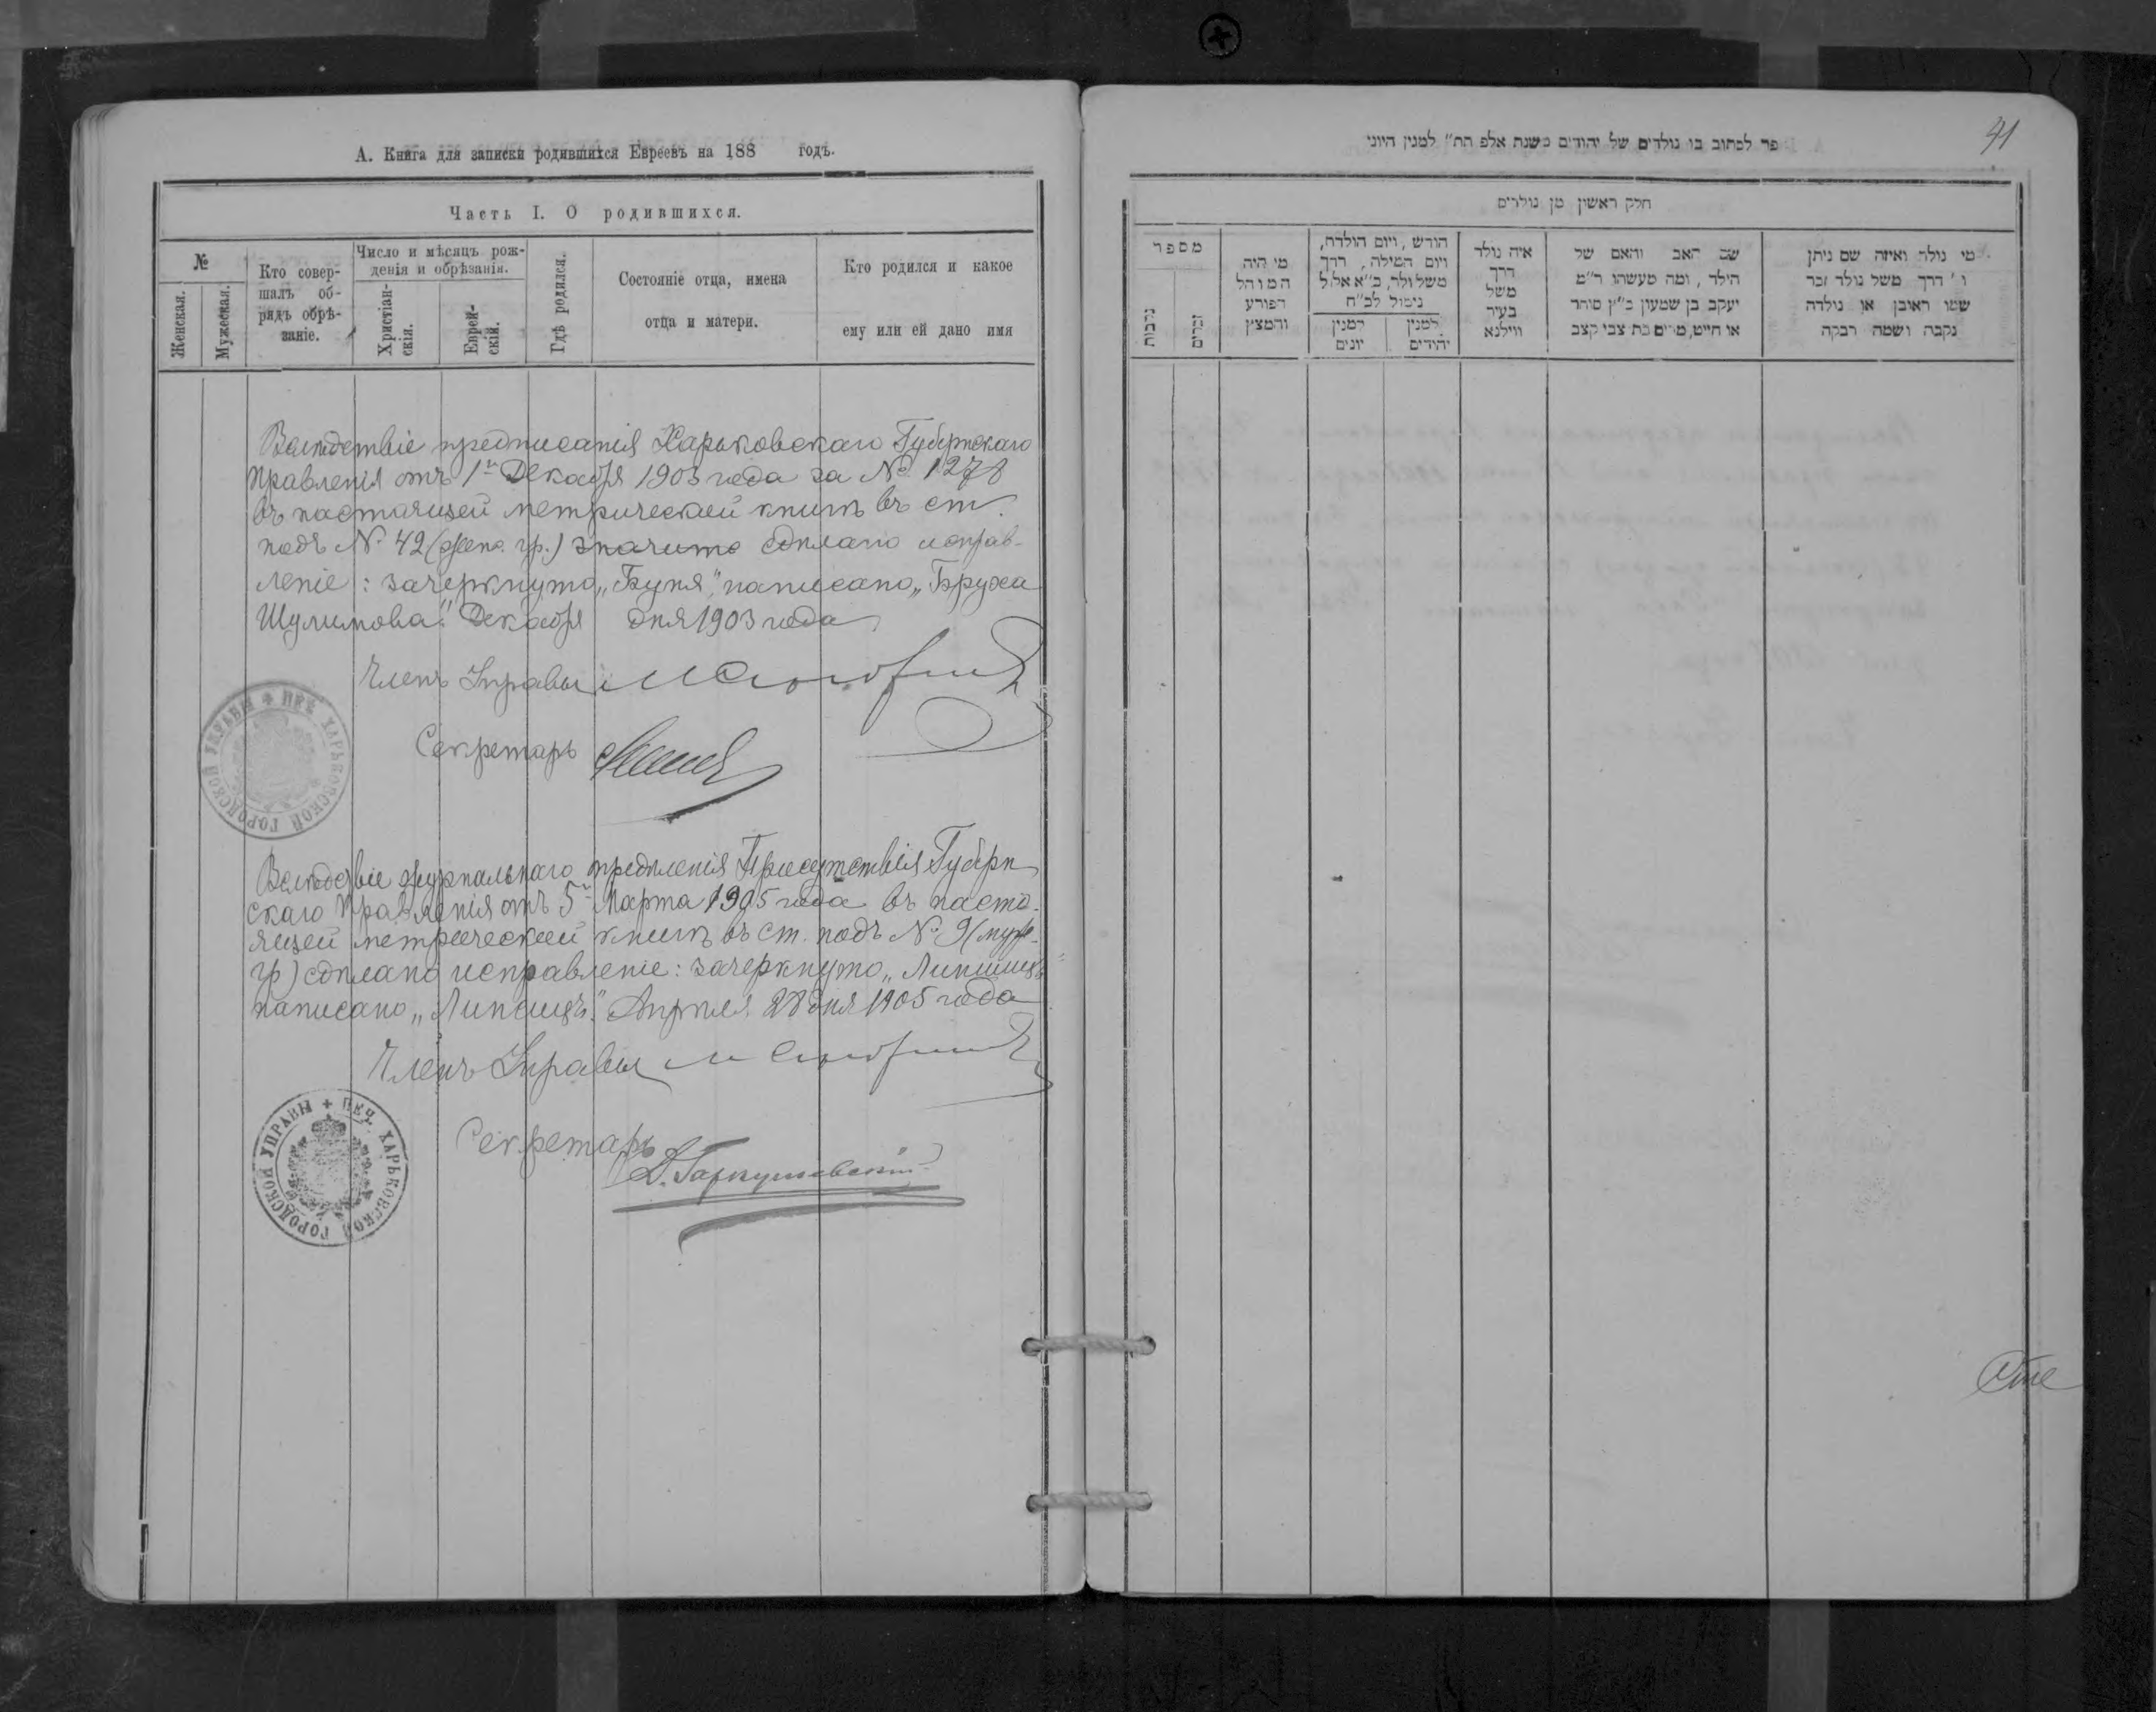 А. Книга для записки родившихся Евреевъ на 188 годъ.
Часть I. О родившихся.
№
Женская.
Мужеская.
Кто совер-
шалъ об-
рядъ обрѣ-
заніе.
Число и мѣсяцъ рож-
денія и обрѣзанія.
Христіан-
скія.
Еврей-
скій.
Гдѣ родился.
Состояніе отца, имена
отца и матери.
Кто родился и какое
ему или ей дано имя
Вслѣдствіе предписанія Харьковскаго Губернскаго
Правленія отъ 1го Декабря 1903 года за № 1278
въ настоящей метрической книгѣ въ ст.
подъ № 42 (женс. гр.) значится сдѣлано исправ-
леніе: зачеркнуто „Буня", написано „Бруха
Шулимова". Декабря дня 1903 года
Членъ Управы
Секретарь
ПЕЧ. ХАРЬКОВСКОЙ ГОРОДСКОЙ УПРАВЫ
Вслѣдствіе журнальнаго опредѣленія Присутствія Губерн
скаго Правленія отъ 5го Марта 1905 года въ насто-
ящей метрической книгѣ въ ст. подъ № 9 (муж.
гр) сдѣлано исправленіе: зачеркнуто „Липшицъ"
написано „Липсицъ". Апрѣля 28 дня 1905 года
Членъ Управы
Секретарь
ПЕЧ. ХАРЬКОВСКОЙ ГОРОДСКОЙ УПРАВЫ
41
פר לכתוב בו נולדים של יהודים משנת אלפ תת״ למנין היוני
חלק ראשין מן נולדים
מספר
נקבות
זכרים
מי היה
המוהל
הפורע
והמצץ
חורש, ויום הולדה,
ויום המילה, דרך
משל ולד, כ״א אלול
נימול לכ״ח
למנין
יונים
למנין
יהודים
איה נולד
דרך
משל
בעיר
ווילנא
שם האב והאם של
הילד, ומה מעשהו ר״מ
יעקב בן שמעון כ״ץ סוחר
או חייט, מרים בת צבי קצב
מי נולד ואיזה שם ניתן
ו' דרך משל נולד זכר
שמו ראובן או נולדה
נקבה ושמה רבקה